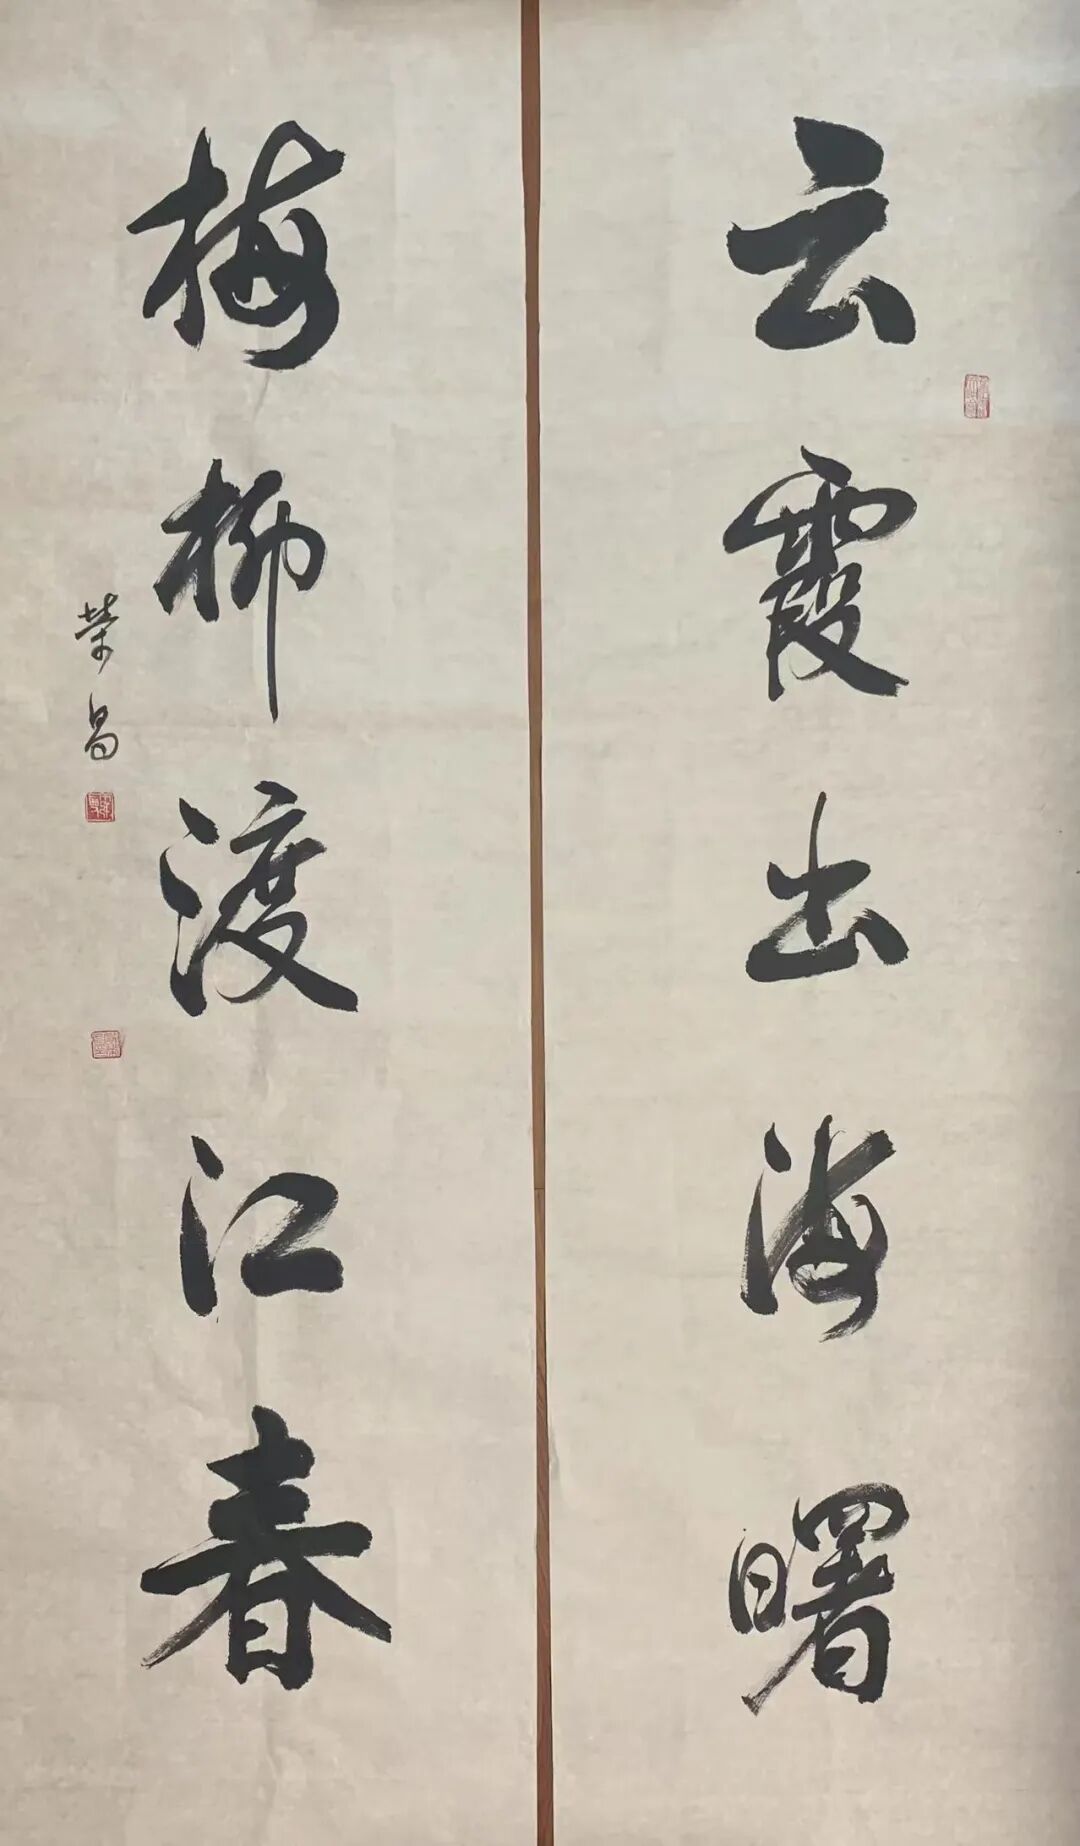 云霞出海曙
梅柳渡江春
荣昌